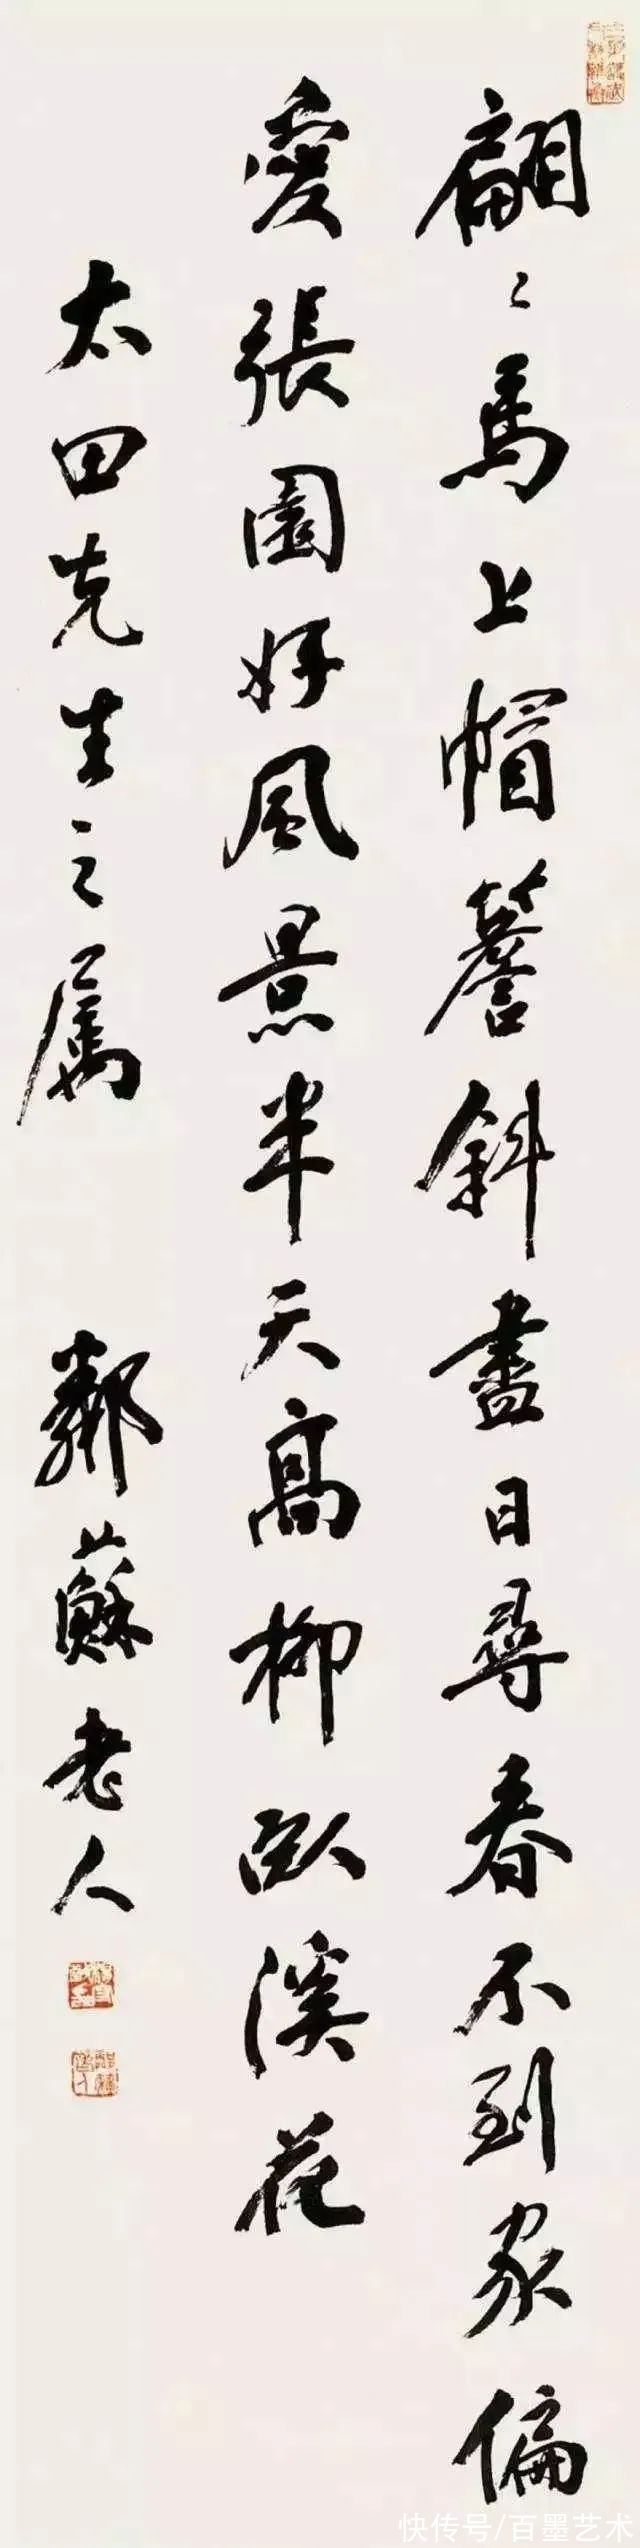 翩〻馬上帽簷斜盡日尋春不到家偏
愛張園好風景半天高柳臥溪花
太田先生之屬 鄰蘇老人
快传号/百墨艺术